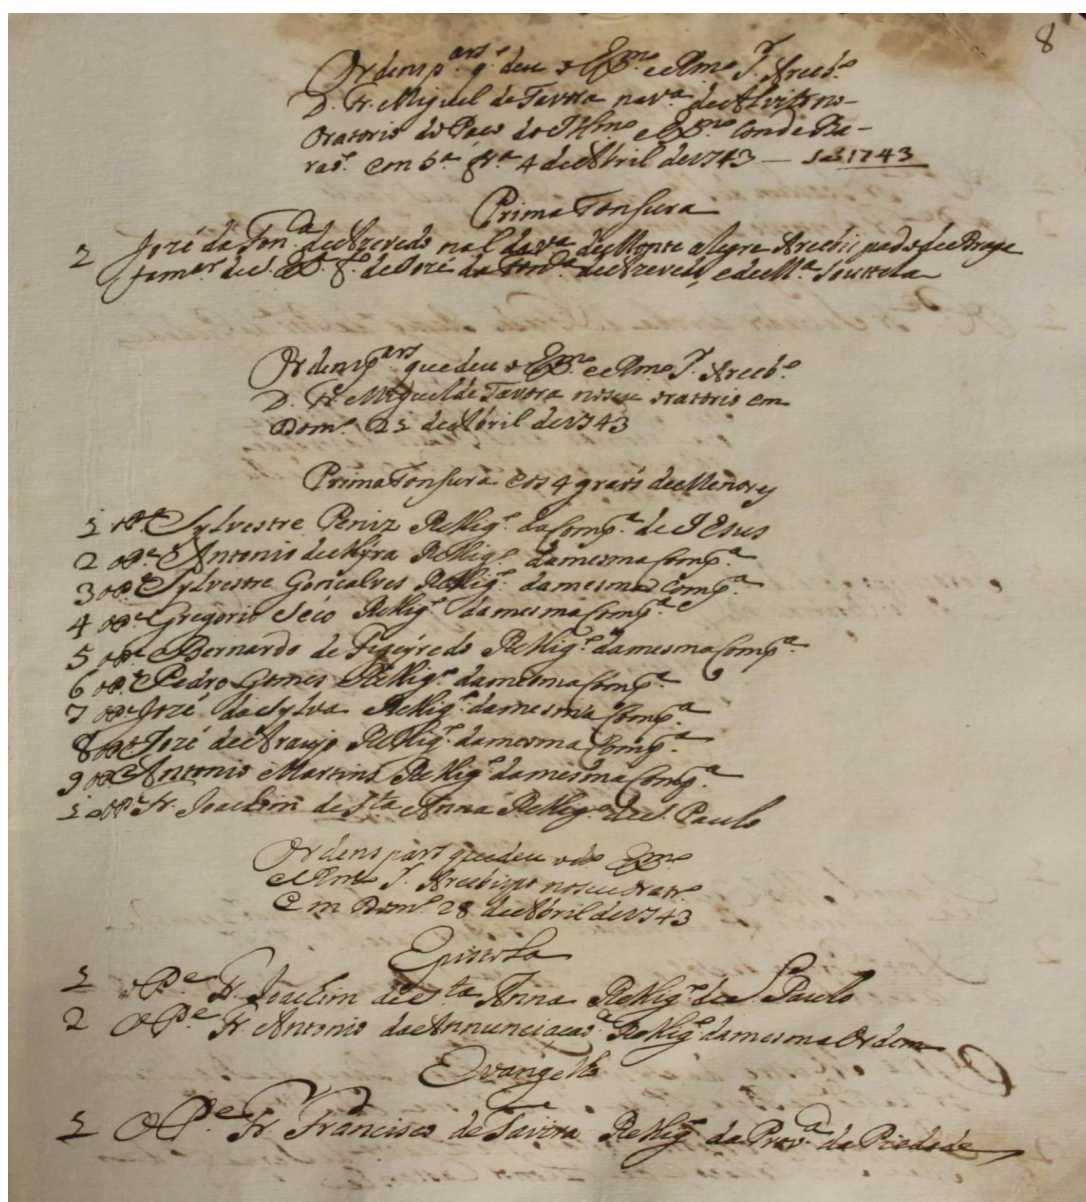 8
Ordens p.ars q.e deu o Ex.mo e R.mo S.r Arceb.o
D. Fr. Miguel de Tavora na v.a de Alvito no
Oratorio do Paço do Ill.mo e Ex.mo Conde Ba-
raõ. em 5.a fr.a 4 de Abril de 1743 — 1743
Prima Tonsura
2 Jozé da Fon.ca de Azevedo nal da va de Monte alegre Arcebispado de Braga
fam.ar de S. Ex.a f.o de Jozé da Fon.ca de Azevedo, e de M.a
Ordens p.ars que deu o Ex.mo e R.mo S.r Arceb.o
D. Fr. Miguel de Tavora no seu oratorio em
Dom.o 21 de Abril de 1743
Prima Tonsura e os 4 graos de Menores
1 o P.e Sylvestre Peniz Relig.o da Comp.a de JEsus
2 o P.e Antonio de Relig.o da mesma Comp.a
3 o P.e Sylvestre Goncalves Relig.o da mesma Comp.a
4 o P.e Gregorio Seco Relig.o da mesma Comp.a
5 o P.e Bernardo de Figeyredo Relig.o da mesma Comp.a
6 o P.e Pedro Gomes Relig.o da mesma Comp.a
7 o P.e Jozé da Sylva Relig.o da mesma Comp.a
8 o P.e Jozé de Araujo Relig.o da mesma Comp.a
9 o P.e Antonio Martins Relig.o da mesma Comp.a
10 o P.e Fr. Joachim de Sta Anna Relig.o de S. Paulo
Ordens pars que deu o do Ex.mo
e R.mo S. Arcebispo no seu Orat.o
em Dom.o 28 de Abril de 1743
Epistola
1 o P.e Fr. Joachim de Sta Anna Relig.o de S. Paulo
2 O P.e Fr. Antonio da Annunciaçaõ Relig.o da mesma Ordem
Evangelho
1 O P.e Fr. Francisco de Tavira Relig.o da Prov.a da Piedade